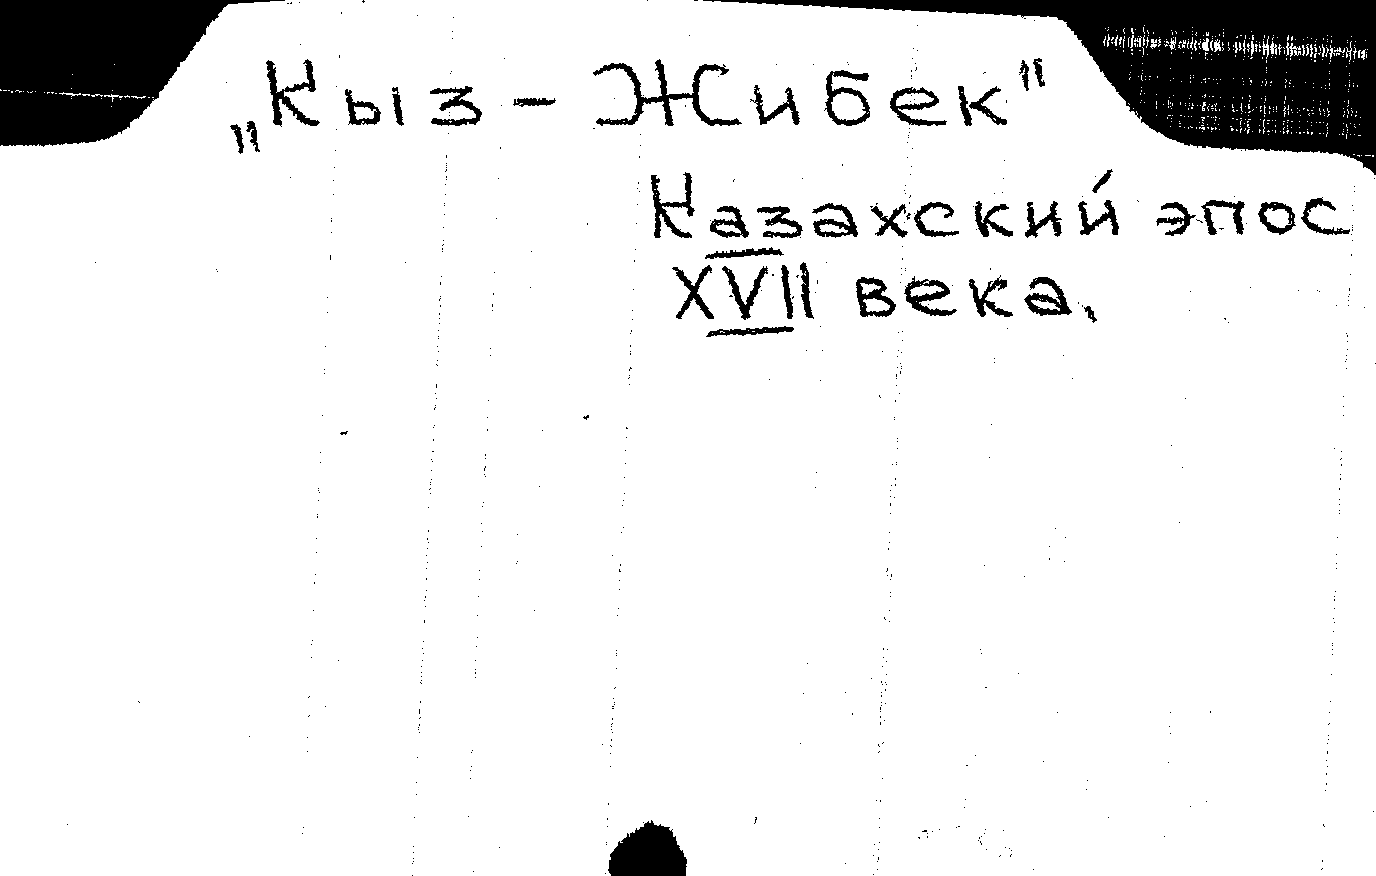 „Кыз - Жибек"
Казахский эпос
XVII века.